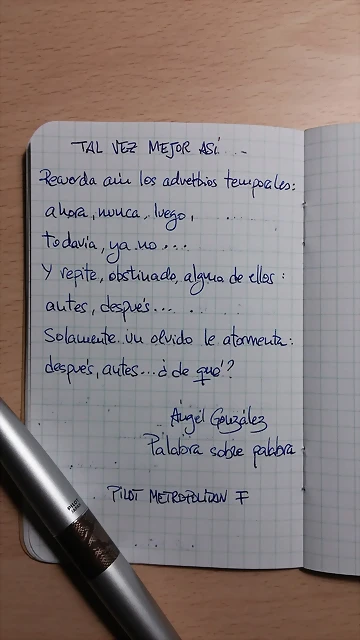 TAL VEZ MEJOR ASÍ...
Recuerda aún los adverbios temporales:
ahora, nunca, luego,
todavía, ya no...
Y repite, obstinado, alguno de ellos:
antes, después...
Solamente un olvido le atormenta:
después, antes... ¿de qué?
Ángel González
Palabra sobre palabra
PILOT METROPOLITAN F
PILOT